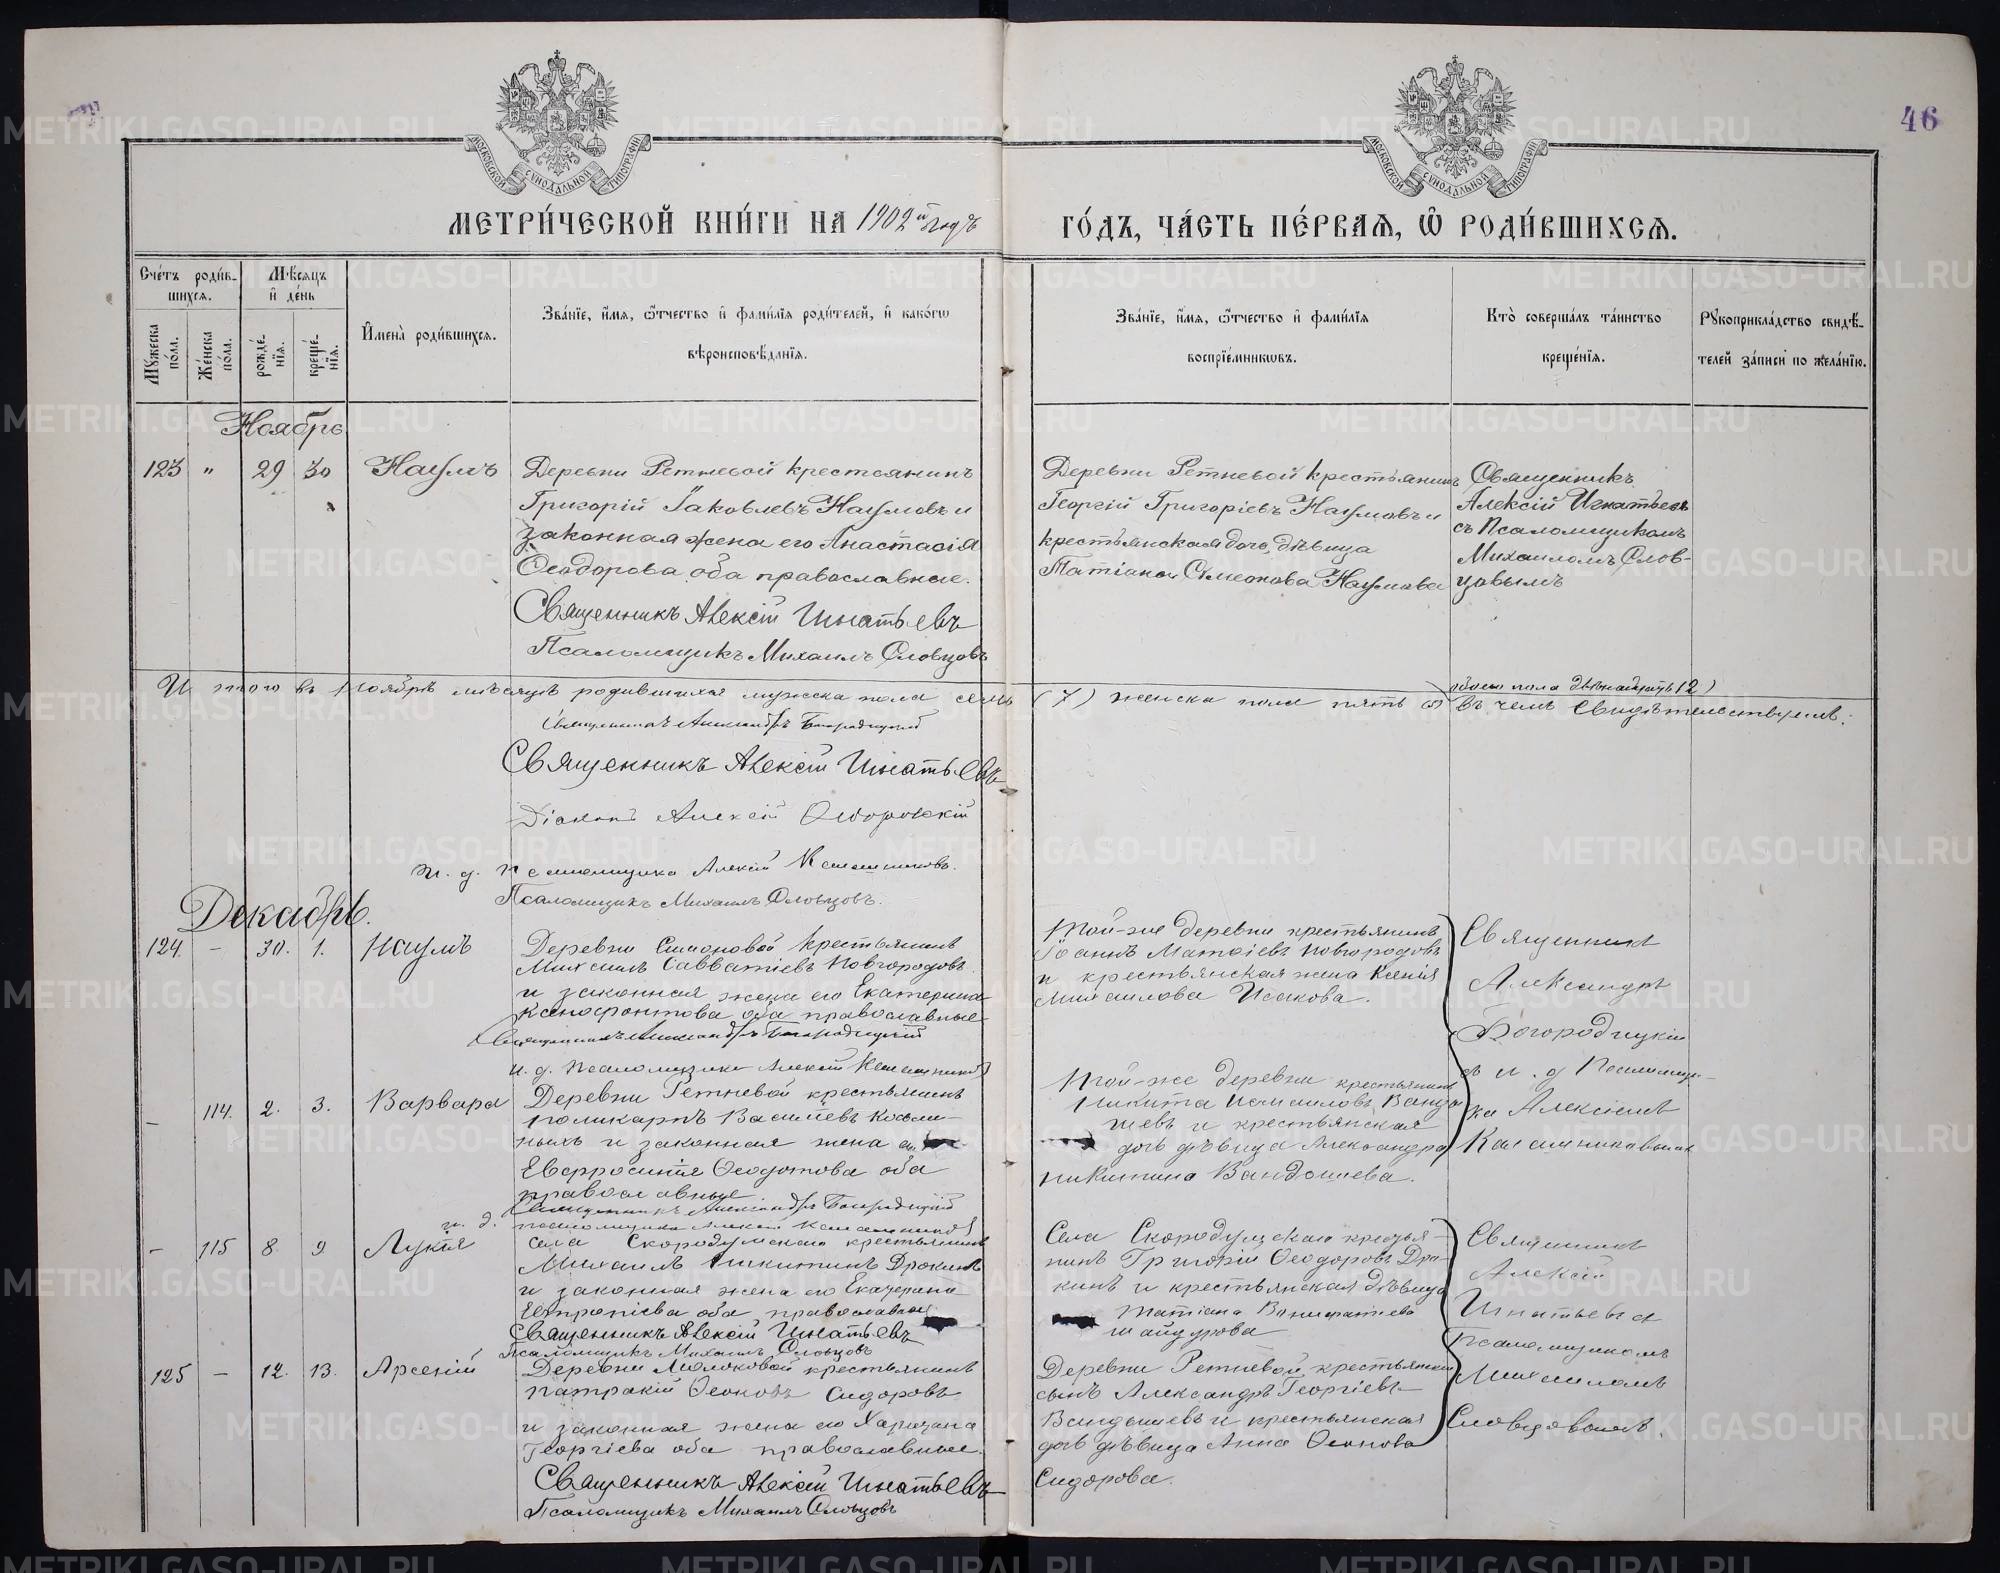 46
МОСКОВСКОЙ СѴНОДАЛЬНОЙ ТИПОГРАФІИ
МОСКОВСКОЙ СѴНОДАЛЬНОЙ ТИПОГРАФІИ
МЕТРИ́ЧЕСКОЙ КНИ́ГИ НА 1902й годъ
ГО́ДЪ, ЧА́СТЬ ПЕ́РВАѦ, Ѽ РОДИ́ВШИХСѦ.
Сче́тъ роди́в-
шихсѧ.
Мѣ́сѧцъ
и҆ де́нь
Мꙋжеска по́ла.
Же́нска по́ла.
рожде́-
нїѧ.
креще́-
нїѧ.
И҆мена̀ роди́вшихсѧ.
Зва́нїе, и҆́мѧ, ѻ҆́тчество и҆ фами́лїѧ роди́телей, и҆ како́гѡ
вѣроисповѣ́данїѧ.
Зва́нїе, и҆́мѧ, ѻ҆́тчество и҆ фами́лїѧ
воспрїе́мникѡвъ.
Кто̀ соверша́лъ та́инство
креще́нїѧ.
Рꙋкоприкла́дство свидѣ́-
телей за́писи по жела́нїю.
Ноябрь
123 " 29 30 Наумъ
Деревни Ретневой крестьянинъ
Григорій Іаковлевъ Наумовъ и
законная жена его Анастасія
Ѳеодорова, оба православные.
Священникъ Алексій Игнатьевъ
Псаломщикъ Михаилъ Словцовъ
Деревни Ретневой крестьянинъ
Георгій Григоріевъ Наумовъ и
крестьянская дочь, дѣвица
Татіана Сѵмеонова Наумова
Священникъ
Алексій Игнатьевъ
съ Псаломщикомъ
Михаиломъ Слов-
цовымъ
И того въ Ноябрѣ мѣсяцѣ родившихся мужска пола семь (7) женска пола пять (5) обоего пола двѣнадцать 12) въ чемъ свидѣтельствуемъ:
Священникъ Александръ Богородицкій
Священникъ Алексій Игнатьевъ
Діаконъ Алексій
и. д. псаломщика Алексій Калашниковъ.
Псаломщикъ Михаилъ Словцовъ.
Декабрь.
124. – 30. 1. Наумъ
Деревни Симоновой крестьянинъ
Михаилъ Савватіевъ Новгородовъ
и законная жена его Екатерина
Ксенофонтова оба православные
Священникъ Александръ Богородицкій
и. д. псаломщика Алексій Калашниковъ
Той-же деревни крестьянинъ
Іоаннъ Матѳіевъ Новгородовъ
и крестьянская жена Ксенія
Михаилова Исакова.
Священникъ
Александръ
Богородицкій
съ и. д Псаломщи-
ка Алексіемъ
Калашниковымъ
– 114. 2. 3. Варвара
Деревни Ретневой крестьянинъ
Поликарпъ Василіевъ Косми-
ныхъ и законная жена
Евфросинія Ѳеодотова оба
православные
Священникъ Александръ Богородицкій
и. д. псаломщика Алексій Калашниковъ
Той-же деревни крестьянинъ
Никита Исмаиловъ Ванды-
шевъ и крестьянская
дочь дѣвица Александра
Никитина Вандышева.
– 115 8. 9. Лукія
Села Скородумскаго крестьянинъ
Михаилъ Никитинъ Дрокинъ
и законная жена его Екатерина
Евтропіева оба православные
Священникъ Алексій Игнатьевъ
Псаломщикъ Михаилъ Словцовъ
Села Скородумскаго крестья-
нинъ Григорій Ѳеодоровъ Дро-
кинъ и крестьянская дѣвица
Татіана Вонифатіева
Шайдурова
Священникъ
Алексій
Игнатьевъ
Псаломщикомъ
Михаиломъ
Словцовымъ.
125 – 12. 13. Арсеній
Деревни Молоковой крестьянинъ
Патракій Ѳеоновъ Сидоровъ
и законная жена его Харитина
Георгіева оба православные.
Священникъ Алексій Игнатьевъ
Псаломщикъ Михаилъ Словцовъ
Деревни Ретневой, крестьянскій
сынъ Александръ Георгіевъ
Вандышевъ и крестьянская
дочь дѣвица Анна Ѳеонова
Сидорова.
METRIKI.GASO-URAL.RU